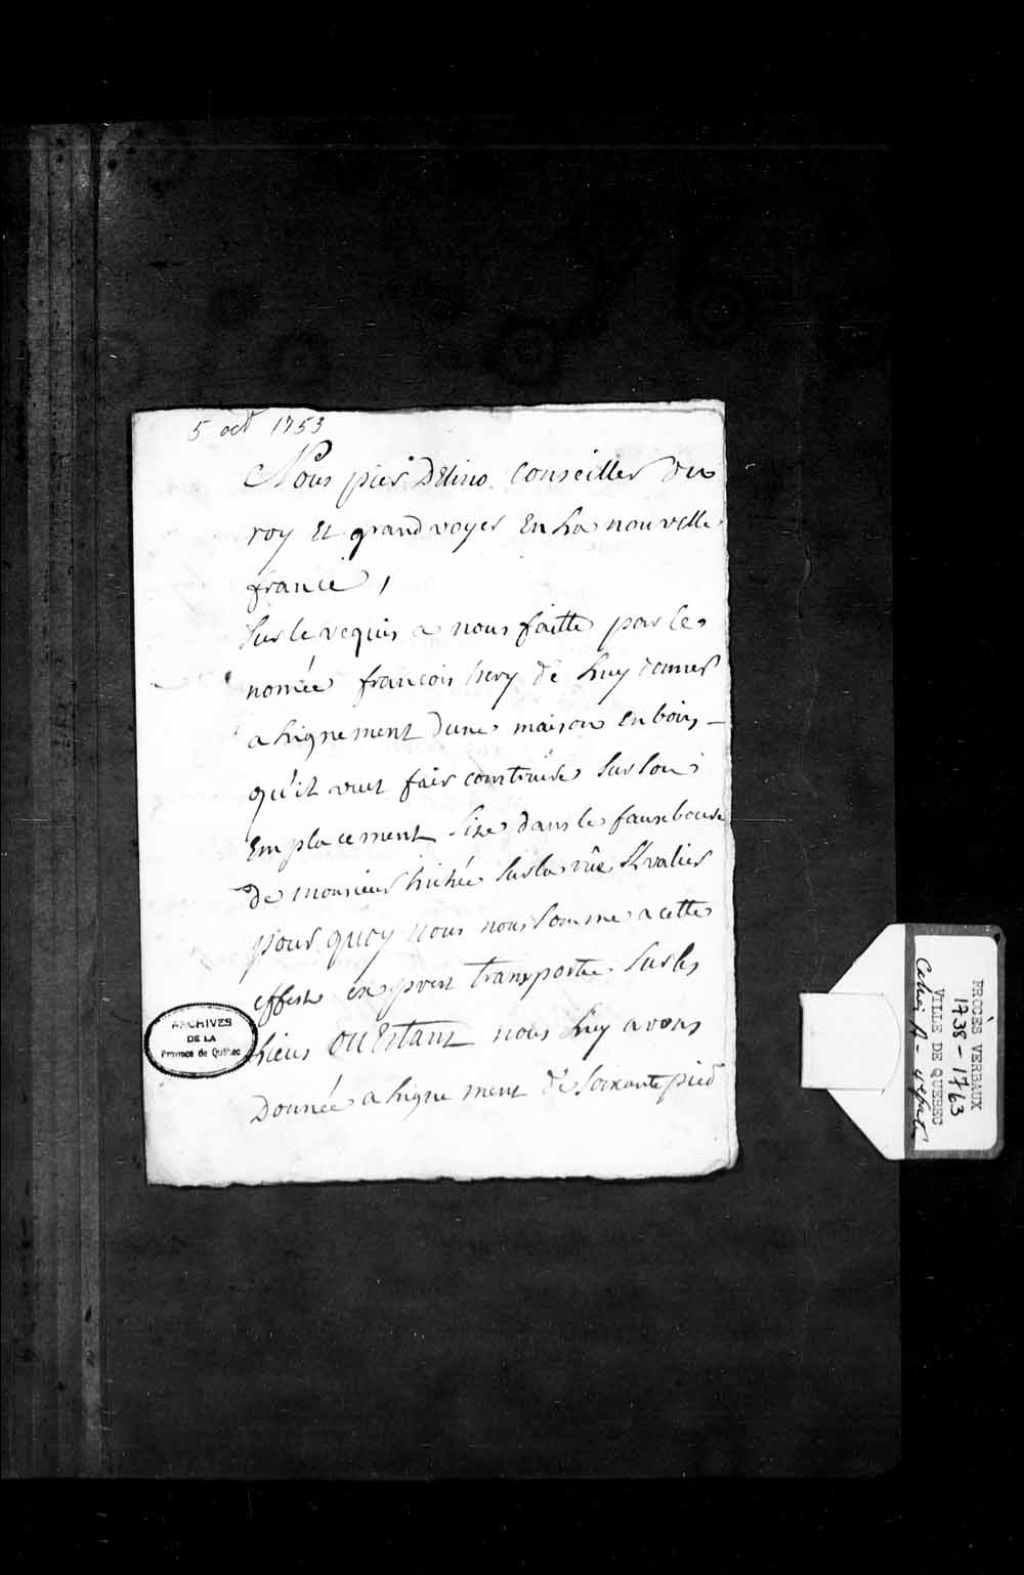 5 oct 1753
Nous pier Delino Conseiller du
roy Et grand voyer En La nouvelle
france,
Sur le requis a nous faitte par le
nomée francois hery de Luy donner
a Lignement dune maison En bois
qu'il veut fair construire Sur son
Emplacement Size dans le fauxbourg
de monsieur hiché Sur la rûe St valier
pour quoy nous nous somme a cette
effest exspres transportée Sur les
Lieus OU Estant nous Luy avons
Donnée a Ligne ment de Soixante pied
ARCHIVES
DE LA
Province de Québec
PROCÈS VERBAUX
1738-1763
VILLE DE QUEBEC
Cahier A-